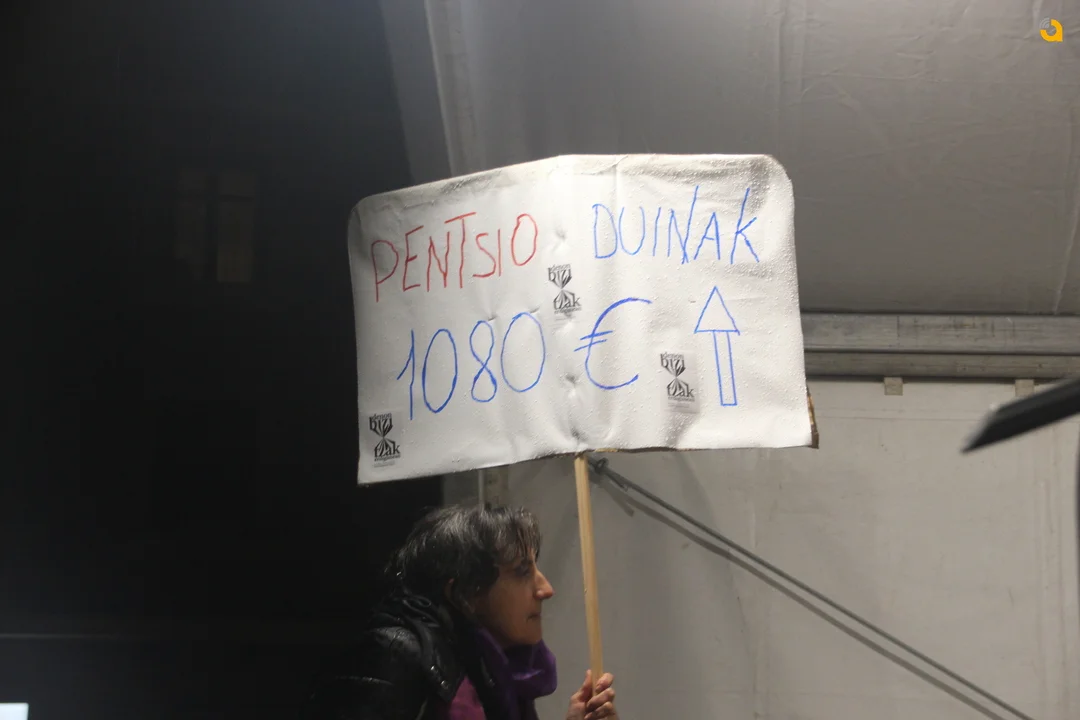 PENTSIO DUINAK
1080 €
denon
bizi
tzak
denon
bizi
tzak
denon
bizi
tzak